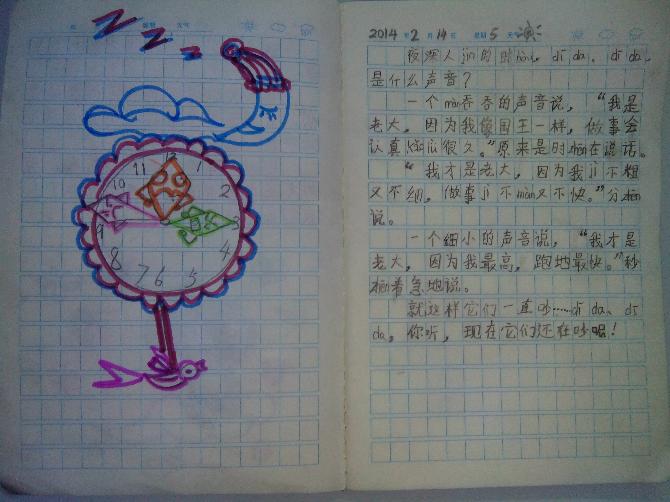 Z Z Z
12
11
1
10
2
9
3
8
4
7
6
5
2014 年 2 月 14 日 星期 5 天气
夜深人jìn的时hòu, dī da、dī da,
是什么声音?
一个màn吞吞的声音说,“我是
老大,因为我像国王一样,做事会
认真 很久。”原来是时zhēn在说话。
“我才是老大,因为我jì不粗
又不细,做事jì不màn又不快。”分zhēn
说。
一个细小的声音说,“我才是
老大,因为我最高,跑地最快。”秒
zhēn着急地说。
就这样它们一直吵……dī da、dī
da。你听,现在它们还在吵呢!